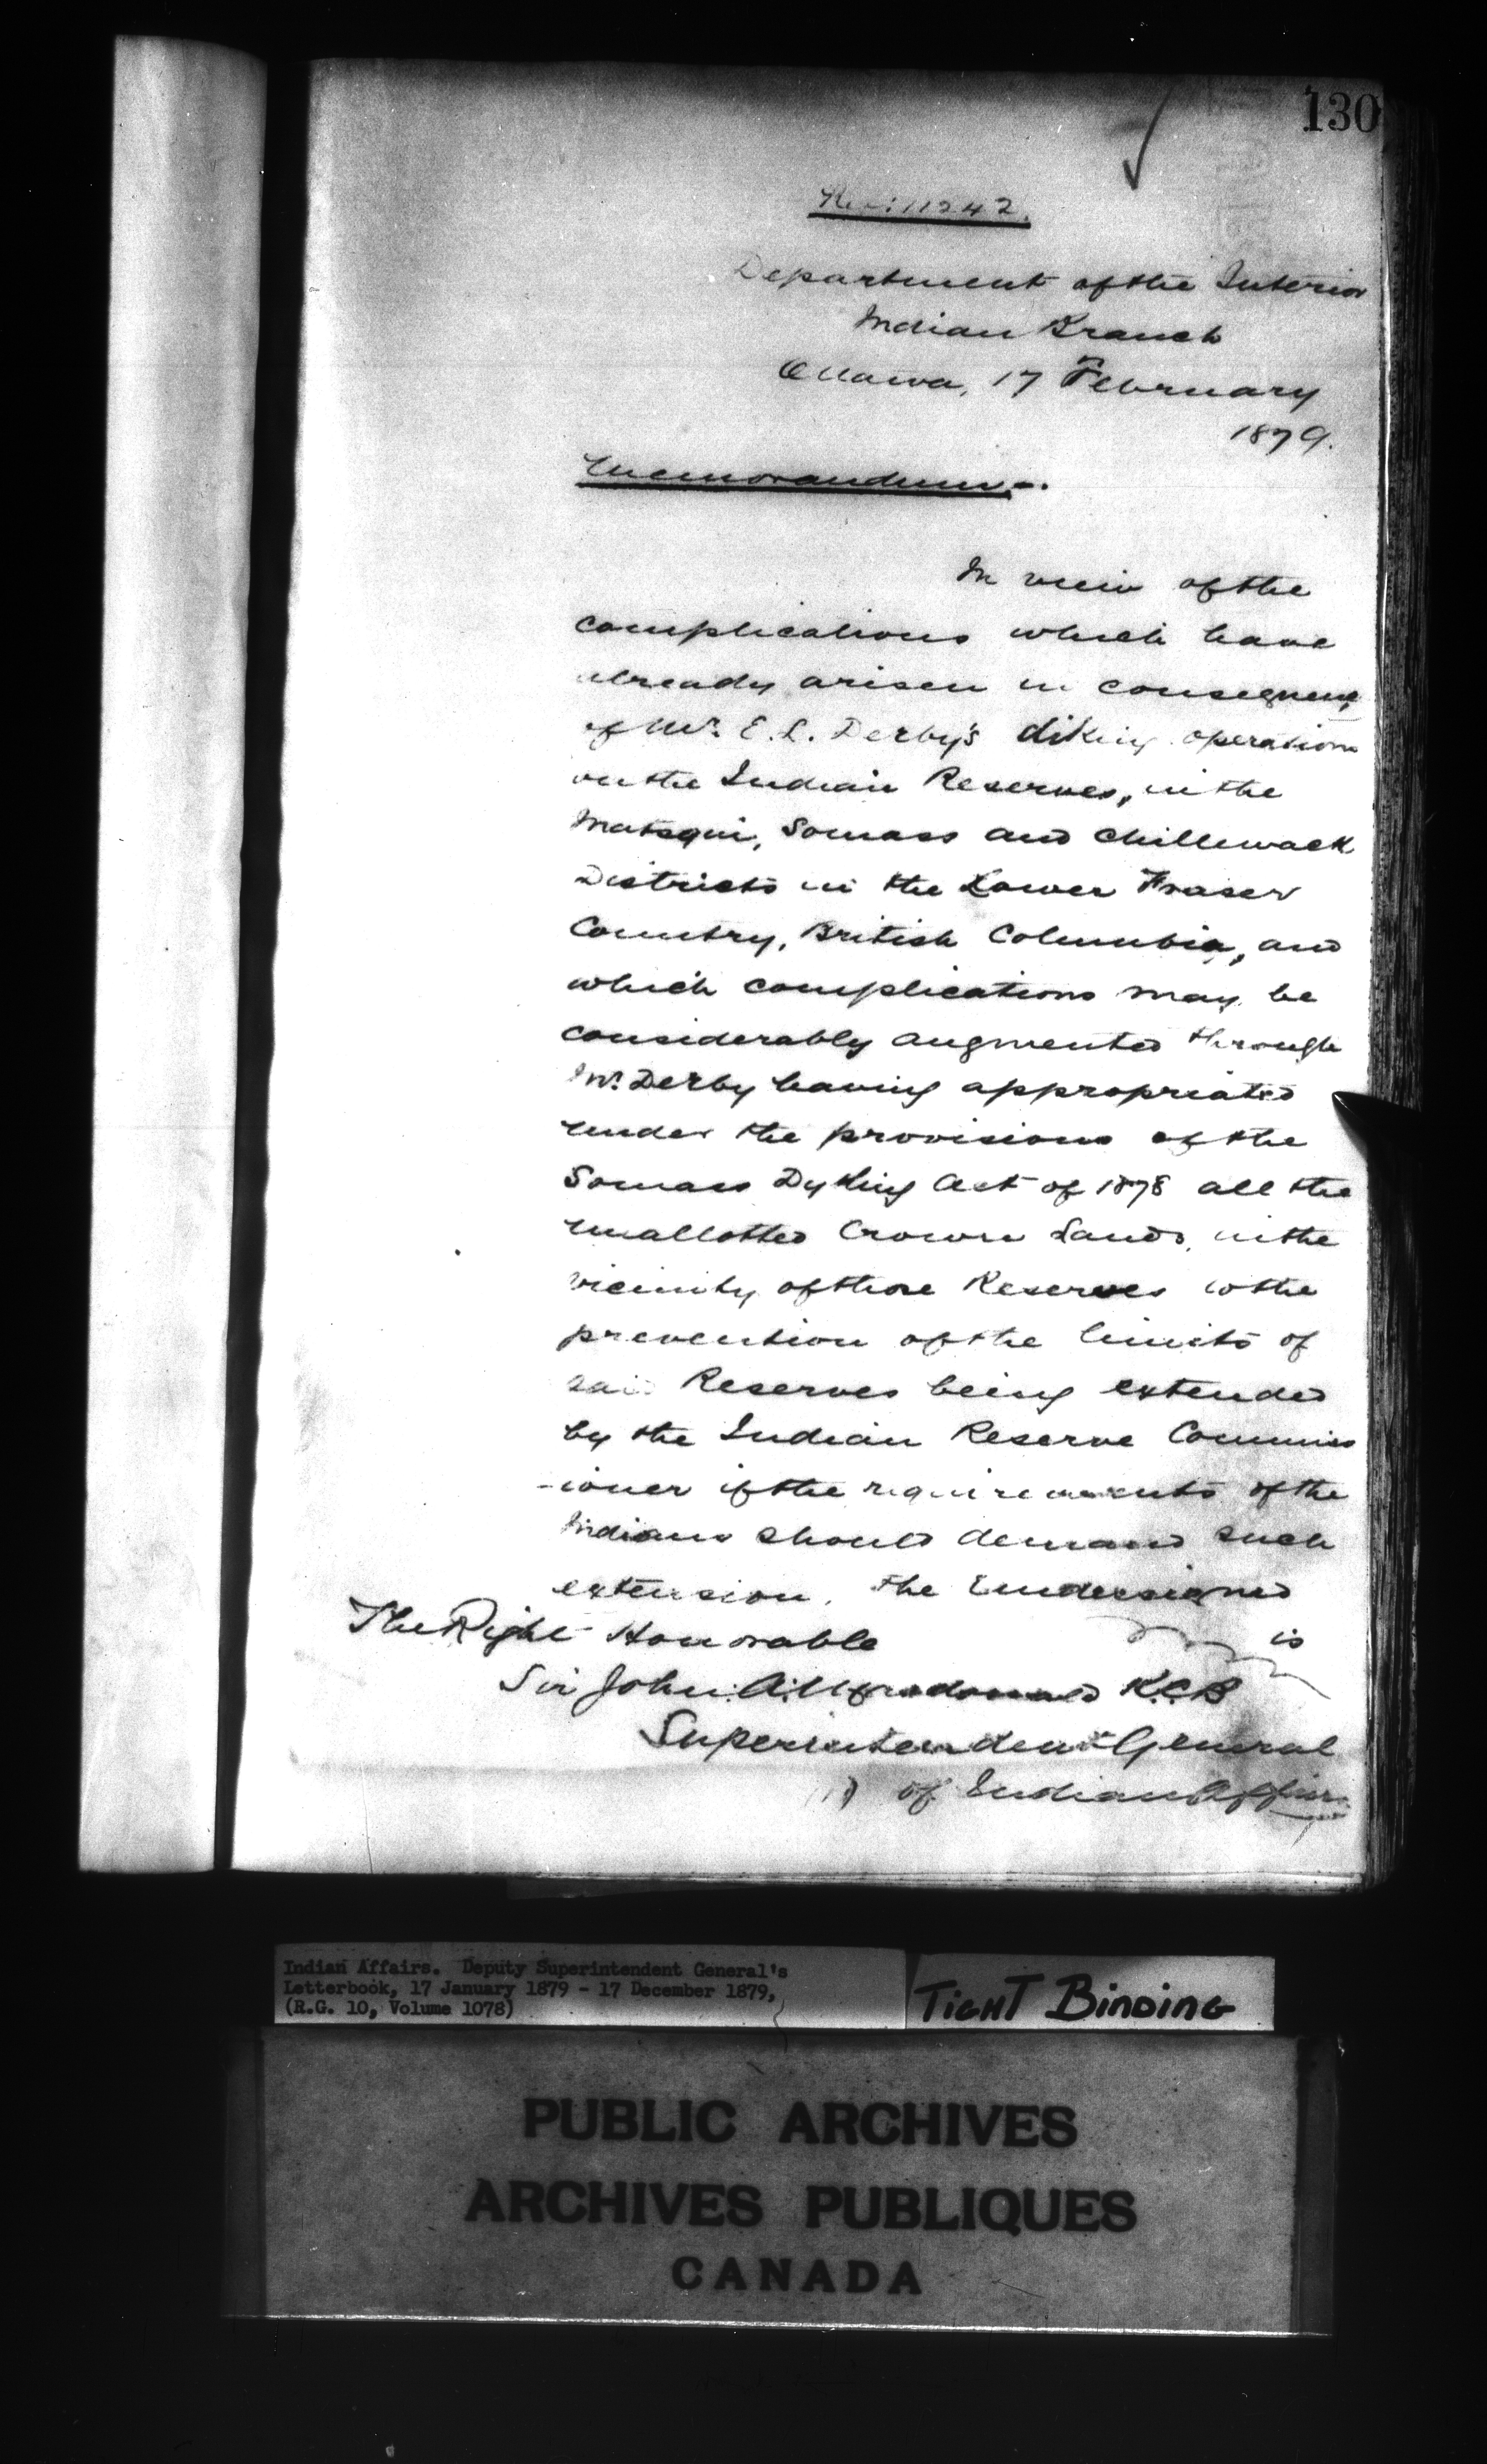 130
11242.
Department of the Interior
Indian Branch
Ottawa, 17 February
1879.
Memorandum.-
In view of the
complications which have
already arisen in consequence
of Mr. E. L. Derby's diking operations
on the Indian Reserves, in the
Matsqui, Somass and Chillewack
Districts in the Lower Fraser
Country, British Columbia, and
which complications may be
considerably augmented through
Mr. Derby having appropriated
under the provisions of the
Somass Dyking Act of 1878 all the
unallotted Crown Lands, in the
vicinity of those Reserves to the
prevention of the limits of
said Reserves being extended
by the Indian Reserve Commiss
-ioner if the requirements of the
Indians should demand such
extension, the Undersigned
is
The Right Honorable
Sir John A. Macdonald K.C.B
Superintendent General
of Indian Affairs
Indian Affairs. Deputy Superintendent General's
Letterbook, 17 January 1879 - 17 December 1879,
(R.G. 10, Volume 1078)
TIGHT BINDING
PUBLIC ARCHIVES
ARCHIVES PUBLIQUES
CANADA